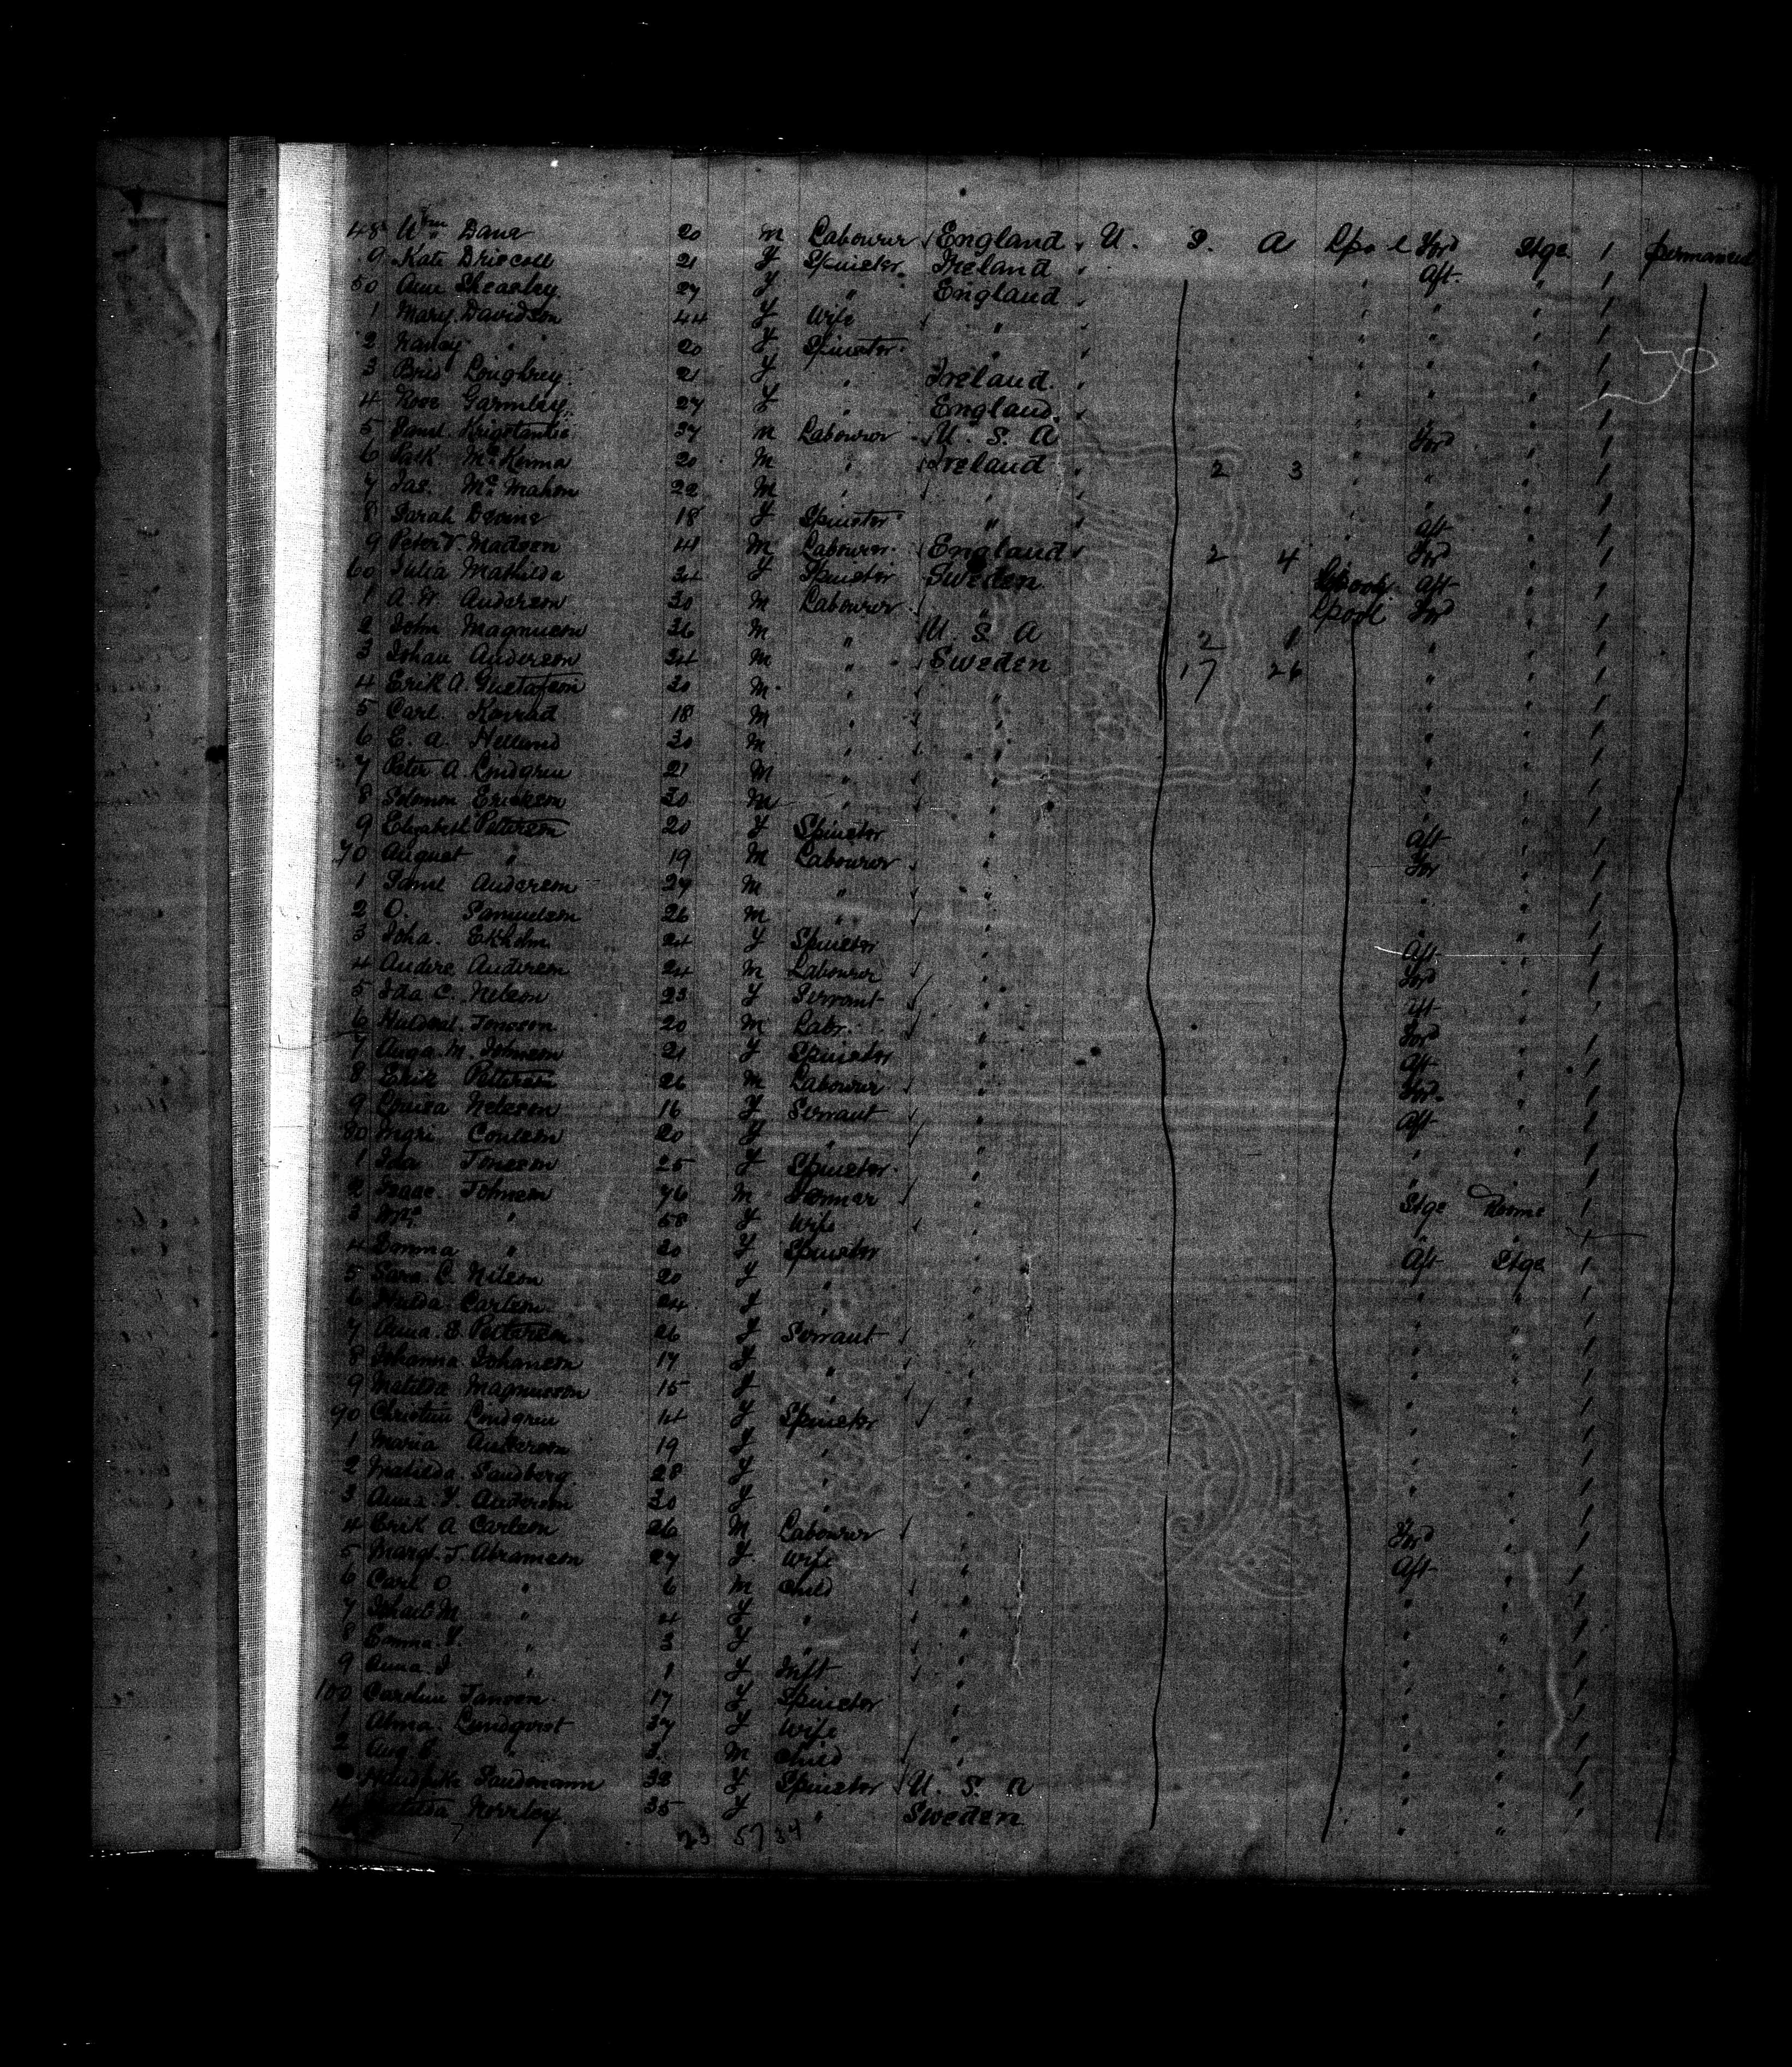 48 Wm Dana 20 M Labourer England U. S. A Lpool Ford Stge 1 permanent
9 Kate Driscoll 21 F Spinster Ireland Aft. " 1
50 Ann Sheasley 27 F " England " " 1
1 Mary Davidson 44 F Wife " " " 1
2 " 20 F Spinster " " " 1
3 Brid Loughrey 21 F " Ireland " " 1
4 Rose Garmley 27 F " England " " 1
5 Saml. 37 M Labourer U. S. A Ford " 1
6 Patk McKenna 20 M " Ireland 2 3 " " 1
7 Jas. McMahon 22 M " " " " 1
8 Sarah Devine 18 F Spinster " Aft " 1
9 Peter V. Madsen 41 M Labourer England 2 4 Ford " 1
60 Julia Mathilda 34 F Spinster Sweden Aft " 1
1 A. W. Anderson 30 M Labourer " Lpool Ford " 1
2 John Magnuson 36 M " U. S. A 2 1 " " 1
3 Johan Anderson 34 M " Sweden 17 26 " " 1
4 Erik A. Gustafson 30 M " " " " 1
5 Carl Konrad 18 M " " " " 1
6 E. A. Helland 30 M " " " " 1
7 Peter A. Lindgren 21 M " " " " 1
8 Solomon Erickson 30 M " " " " 1
9 Elizabeth Petterson 20 F Spinster " Aft " 1
70 August " 19 M Labourer " For " 1
1 Saml Anderson 27 M " " " " 1
2 O. Samuelson 26 M " " " " 1
3 Joha. Ekholm 24 F Spinster " Aft " 1
4 Andre Anderson 24 M Labourer " Ford " 1
5 Ida C. Nelson 23 F Servant " Aft " 1
6 Jonsson 20 M Labr. " Ford " 1
7 M. Johnson 21 F Spinster " Aft " 1
8 Erik Petterson 26 M Labourer " Ford " 1
9 Louisa Nelson 16 F Servant " Aft " 1
80 Ingri 20 F " " " " 1
1 Ida Jonsson 25 F Spinster " " " 1
2 Isaac Johnson 76 M Farmer " Stge Rooms 1
3 Mrs " 58 F Wife " " " 1
4 Emma " 20 F Spinster " Aft Stge 1
5 Sara C. Nilson 20 F " " " " 1
6 Hulda Carlson 24 F " " " " 1
7 Anna E Petterson 26 F Servant " " " 1
8 Johanna Johanson 17 F " " " " 1
9 Matilda Magnusson 15 F " " " " 1
90 Christin Lindgren 14 F Spinster " " " 1
1 Maria Anderson 19 F " " " " 1
2 Matilda Sandberg 28 F " " " " 1
3 Anna F. Anderson 30 F " " " " 1
4 Erik A Carlson 26 M Labourer " Ford " 1
5 Margt. J. Abramson 27 F Wife " Aft " 1
6 Carl O " 6 M Child " " " 1
7 M " 4 F " " " " 1
8 Emma F. " 3 F " " " " 1
9 Anna I " 1 F Inft " " " 1
100 Caroline Janson 17 F Spinster " " " 1
1 Alma Lundqvist 37 F Wife " " " 1
2 Aug E. " 3 M Child " " " 1
Sandmann 32 F Spinster U. S. A " " 1
4 Matilda Norrley 35 F " Sweden " " 1
23 57 34